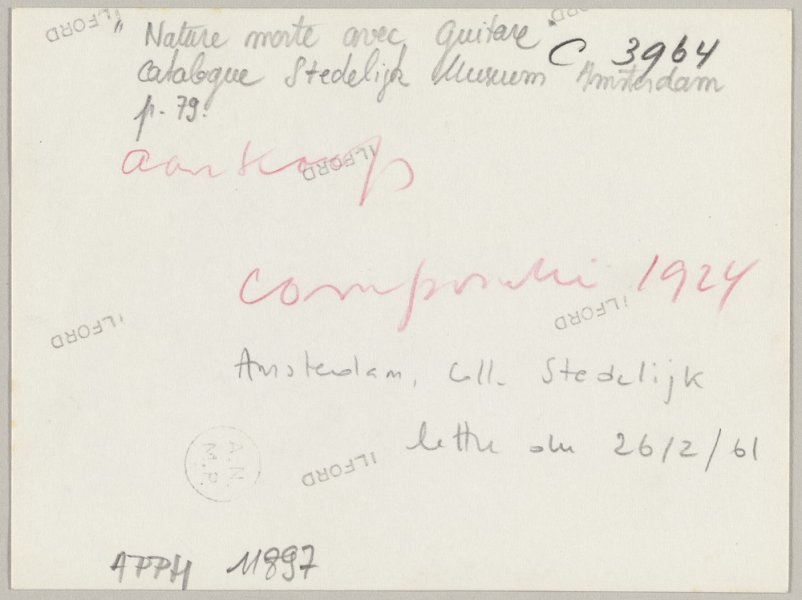 ILFORD ILFORD
"Nature morte avec Guitare" C 3964
catalogue Stedelijk Museum Amsterdam
p. 79.
aankoop
ILFORD
compositie 1924
ILFORD
ILFORD
Amsterdam, Coll. Stedelijk
lettre du 26/2/61
A.N.
M.P.
ILFORD
APPH 11897